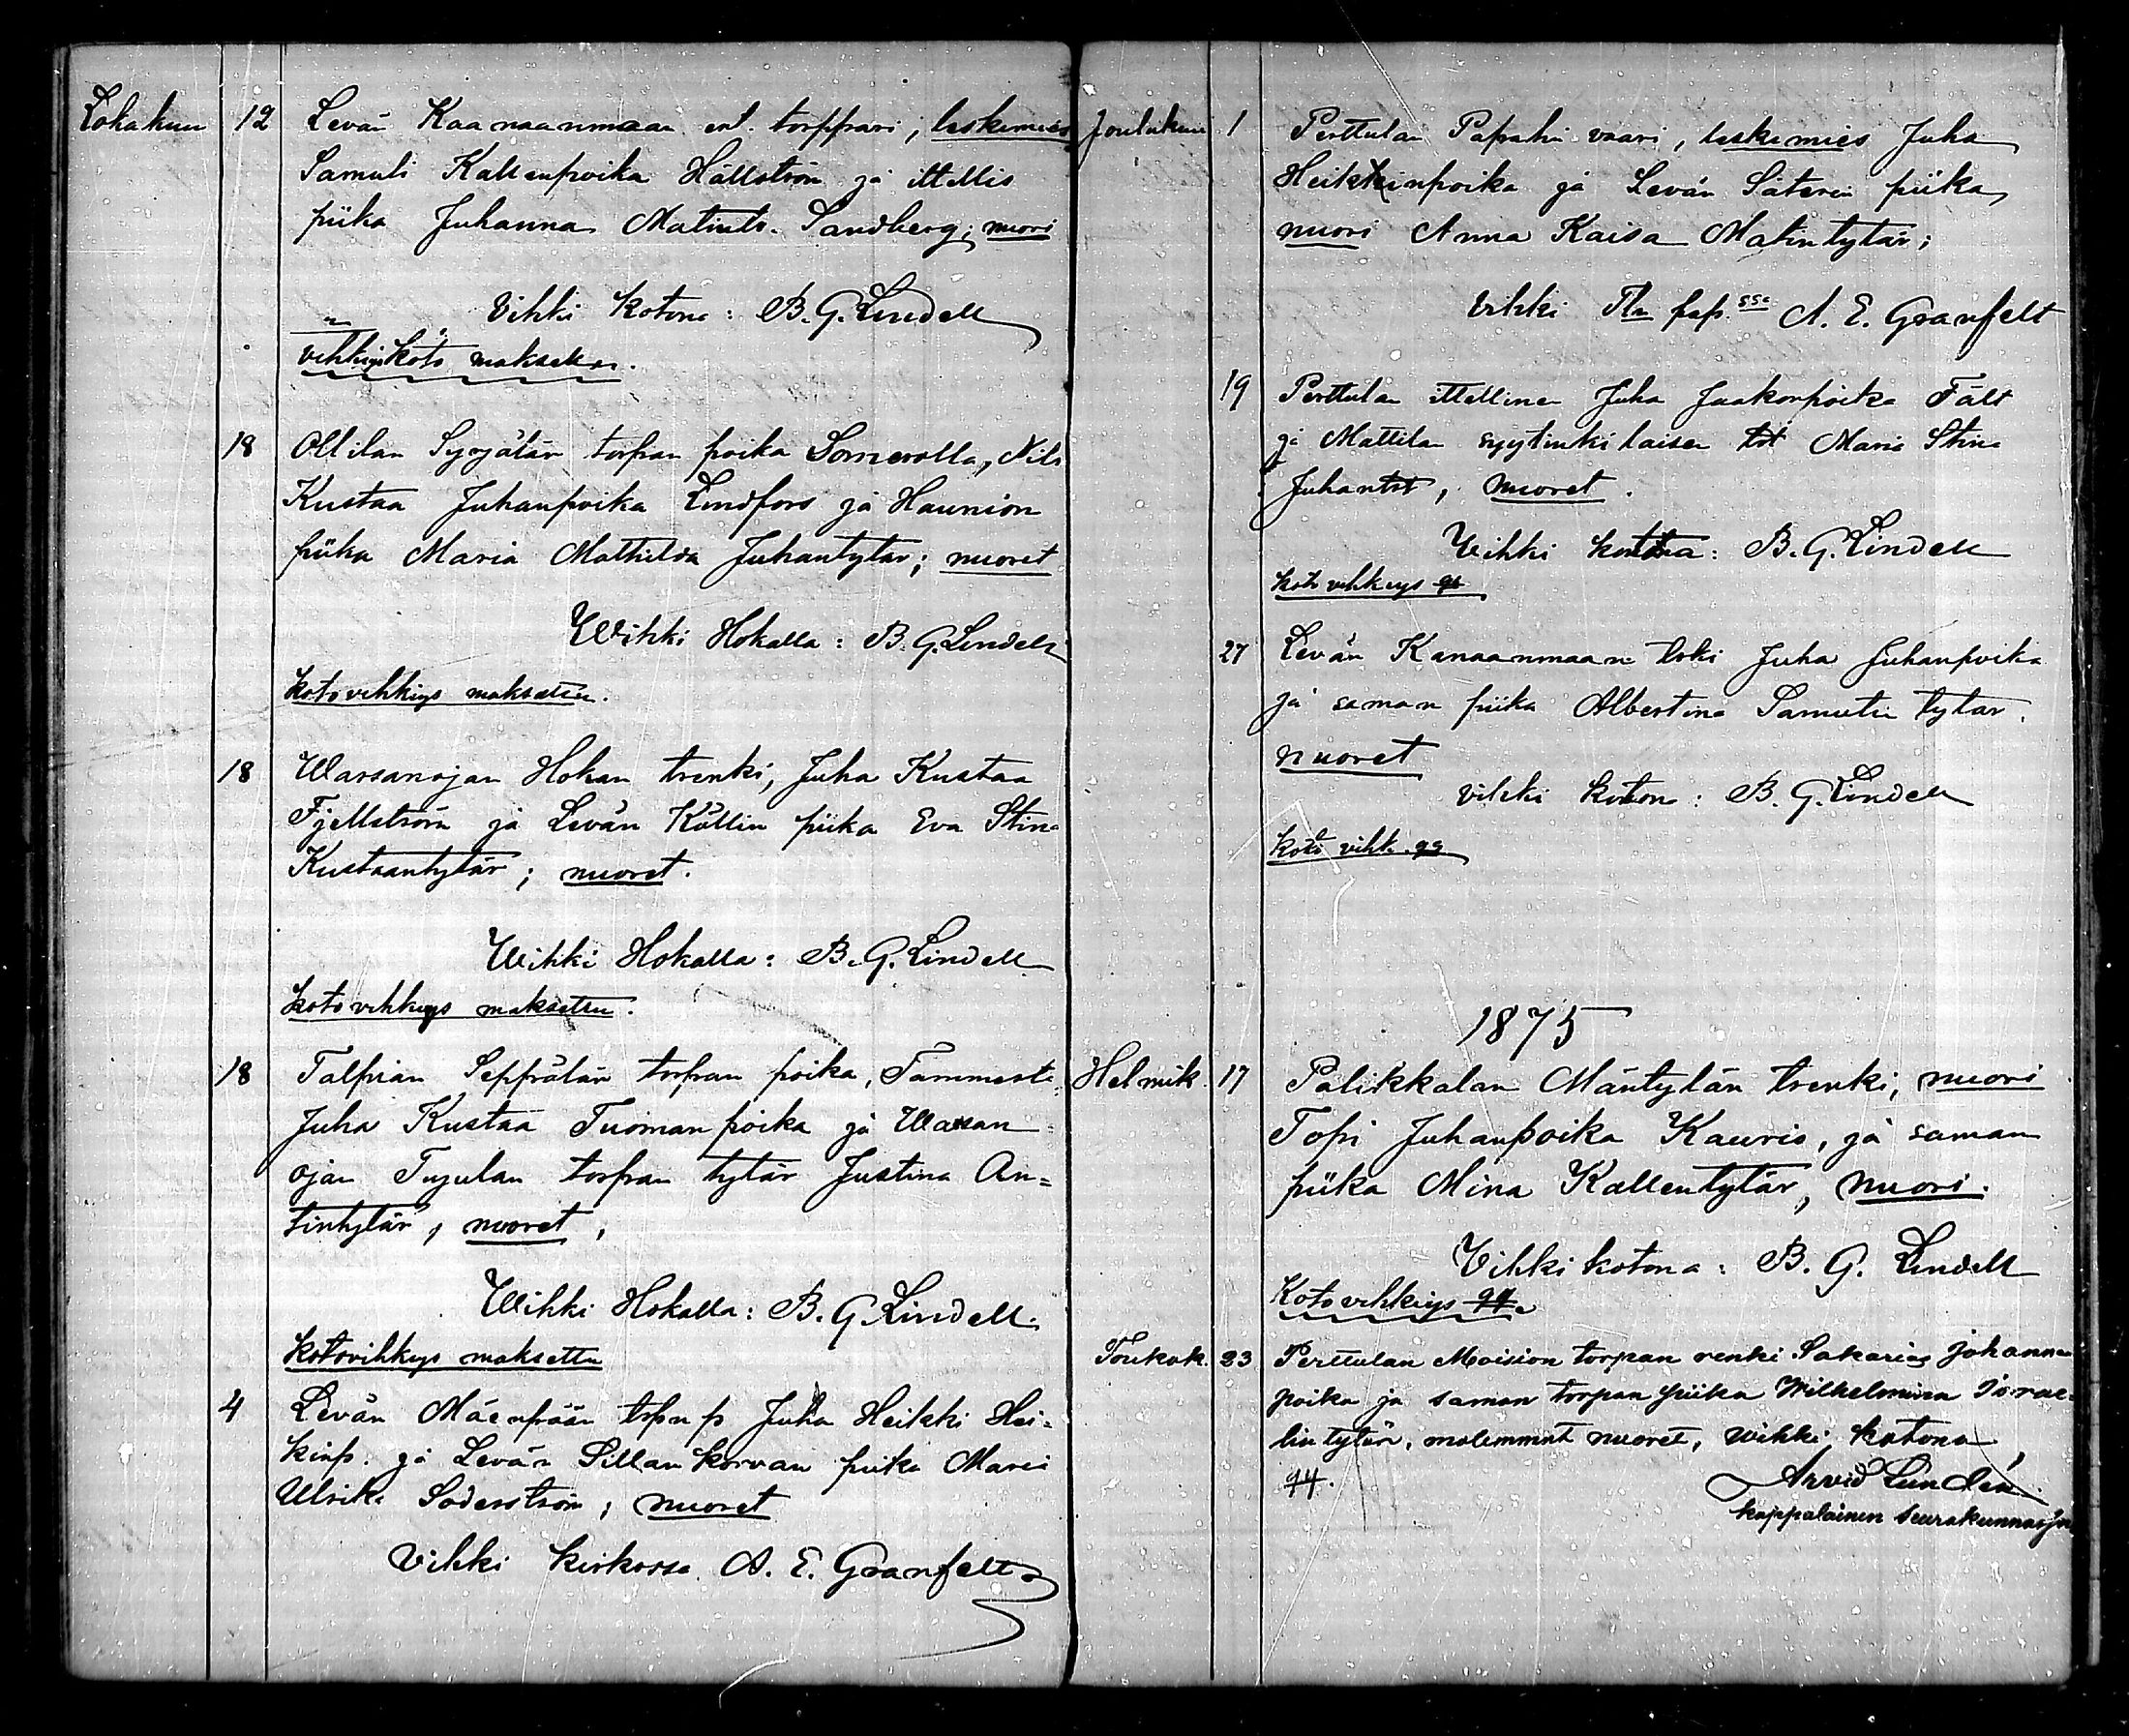 Lokakuu 12 Levän Kaanaanmaan ent. torppari, leskimies
Samuli Kallenpoika Hällström ja ittellis
piika Juhanna Matints. Sandberg; nuori
Vihki kotona: B. G. Lindell
vihkiys koto maksettu.
18 Ollilan Syrjälän torpan poika Somerolla, Nils
Kustaa Juhanpoika Lindfors ja Haunion
piika Maria Mathilda Juhantytär; nuoret
Wihki Hokalla: B. G. Lindell
kotovihkiys maksettu.
18 Warsanojan Hokan trenki, Juha Kustaa
Fjellström ja Levän Köllin piika Eva Stina
Kustaantytär; nuoret.
Wihki Hokalla: B. G. Lindell
kotovihkiys maksettu.
18 Talpian Seppälän torpan poika, Tammesta
Juha Kustaa Tuomanpoika ja Warsan=
ojan Tujulan torpan tytär Justina An=
tintytär, nuoret,
Wihki Hokalla: B. G. Lindell.
kotovihkiys maksettu
4 Levän Mäenpään p Juha Heikki Hei=
kinp. ja Levän Sillankorvan piika Maria
Ulrika Söderström; nuoret
Vihki kirkossa A. E. Granfelt
Joulukuu 1 Perttulan Papahi vaari, leskimies Juha
Heikkinpoika ja Levän Säterin piika
nuori Anna Kaisa Matintytär;
Vihki pap.ssa A. E. Granfelt
19 Perttulan ittellinen Juha Jaakonpoika Fält
ja Mattilan syytinkilaisen tyt Maria Stina
Juhantyt, nuoret.
Vihki kotona: B. G. Lindell
kotovihkiys
27 Levän Kanaanmaan leski Juha Juhanpoika
ja saman piika Albertina Samulin tytär.
nuoret
Vihki kotona: B. G. Lindell
koto vihk.
1875
Helmik. 17 Palikkalan Mäntylän trenki, nuori
Topi Juhanpoika Kauris, ja saman
piika Mina Kallentytär, nuori.
Vihki kotona: B. G. Lindell
Kotovihkiys
Toukok. 23 Perttulan Moision torpan renki Sakarias Johannen
poika ja saman torpan piika Wilhelmiina Israe=
lin tytär, molemmat nuoret, Wihki kotona
Arvid Lundén
kappalainen seurakunnassa